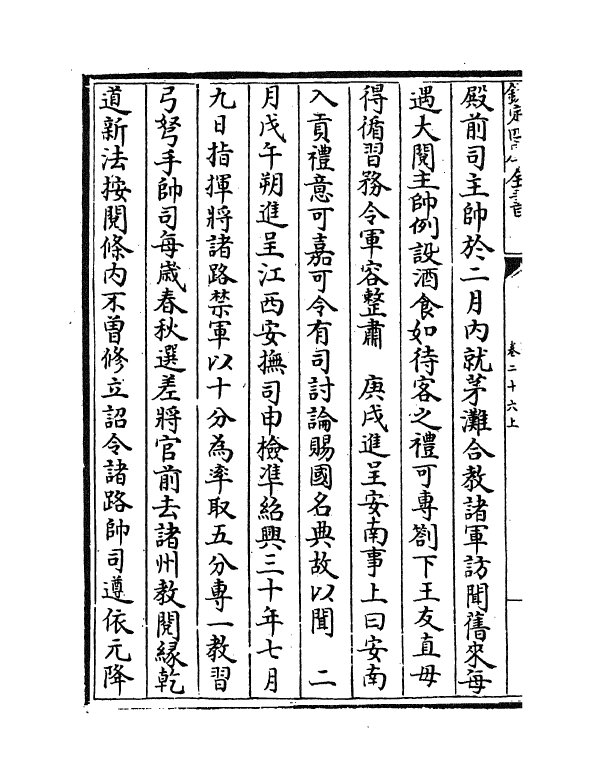 欽定四庫全書
卷二十六上
殿前司主帥於二月内就茅灘合教諸軍訪聞舊來每
遇大閱主帥例設酒食如待客之禮可專劄下王友直毋
得循習務令軍容整肅　庚戌進呈安南事上曰安南
入貢禮意可嘉可令有司討論賜國名典故以聞　二
月戊午朔進呈江西安撫司申檢準紹興三十年七月
九日指揮將諸路禁軍以十分為率取五分專一教習
弓弩手帥司每歳春秋選差將官前去諸州教閱緣乾
道新法按閱條内不曽修立詔令諸路帥司遵依元降